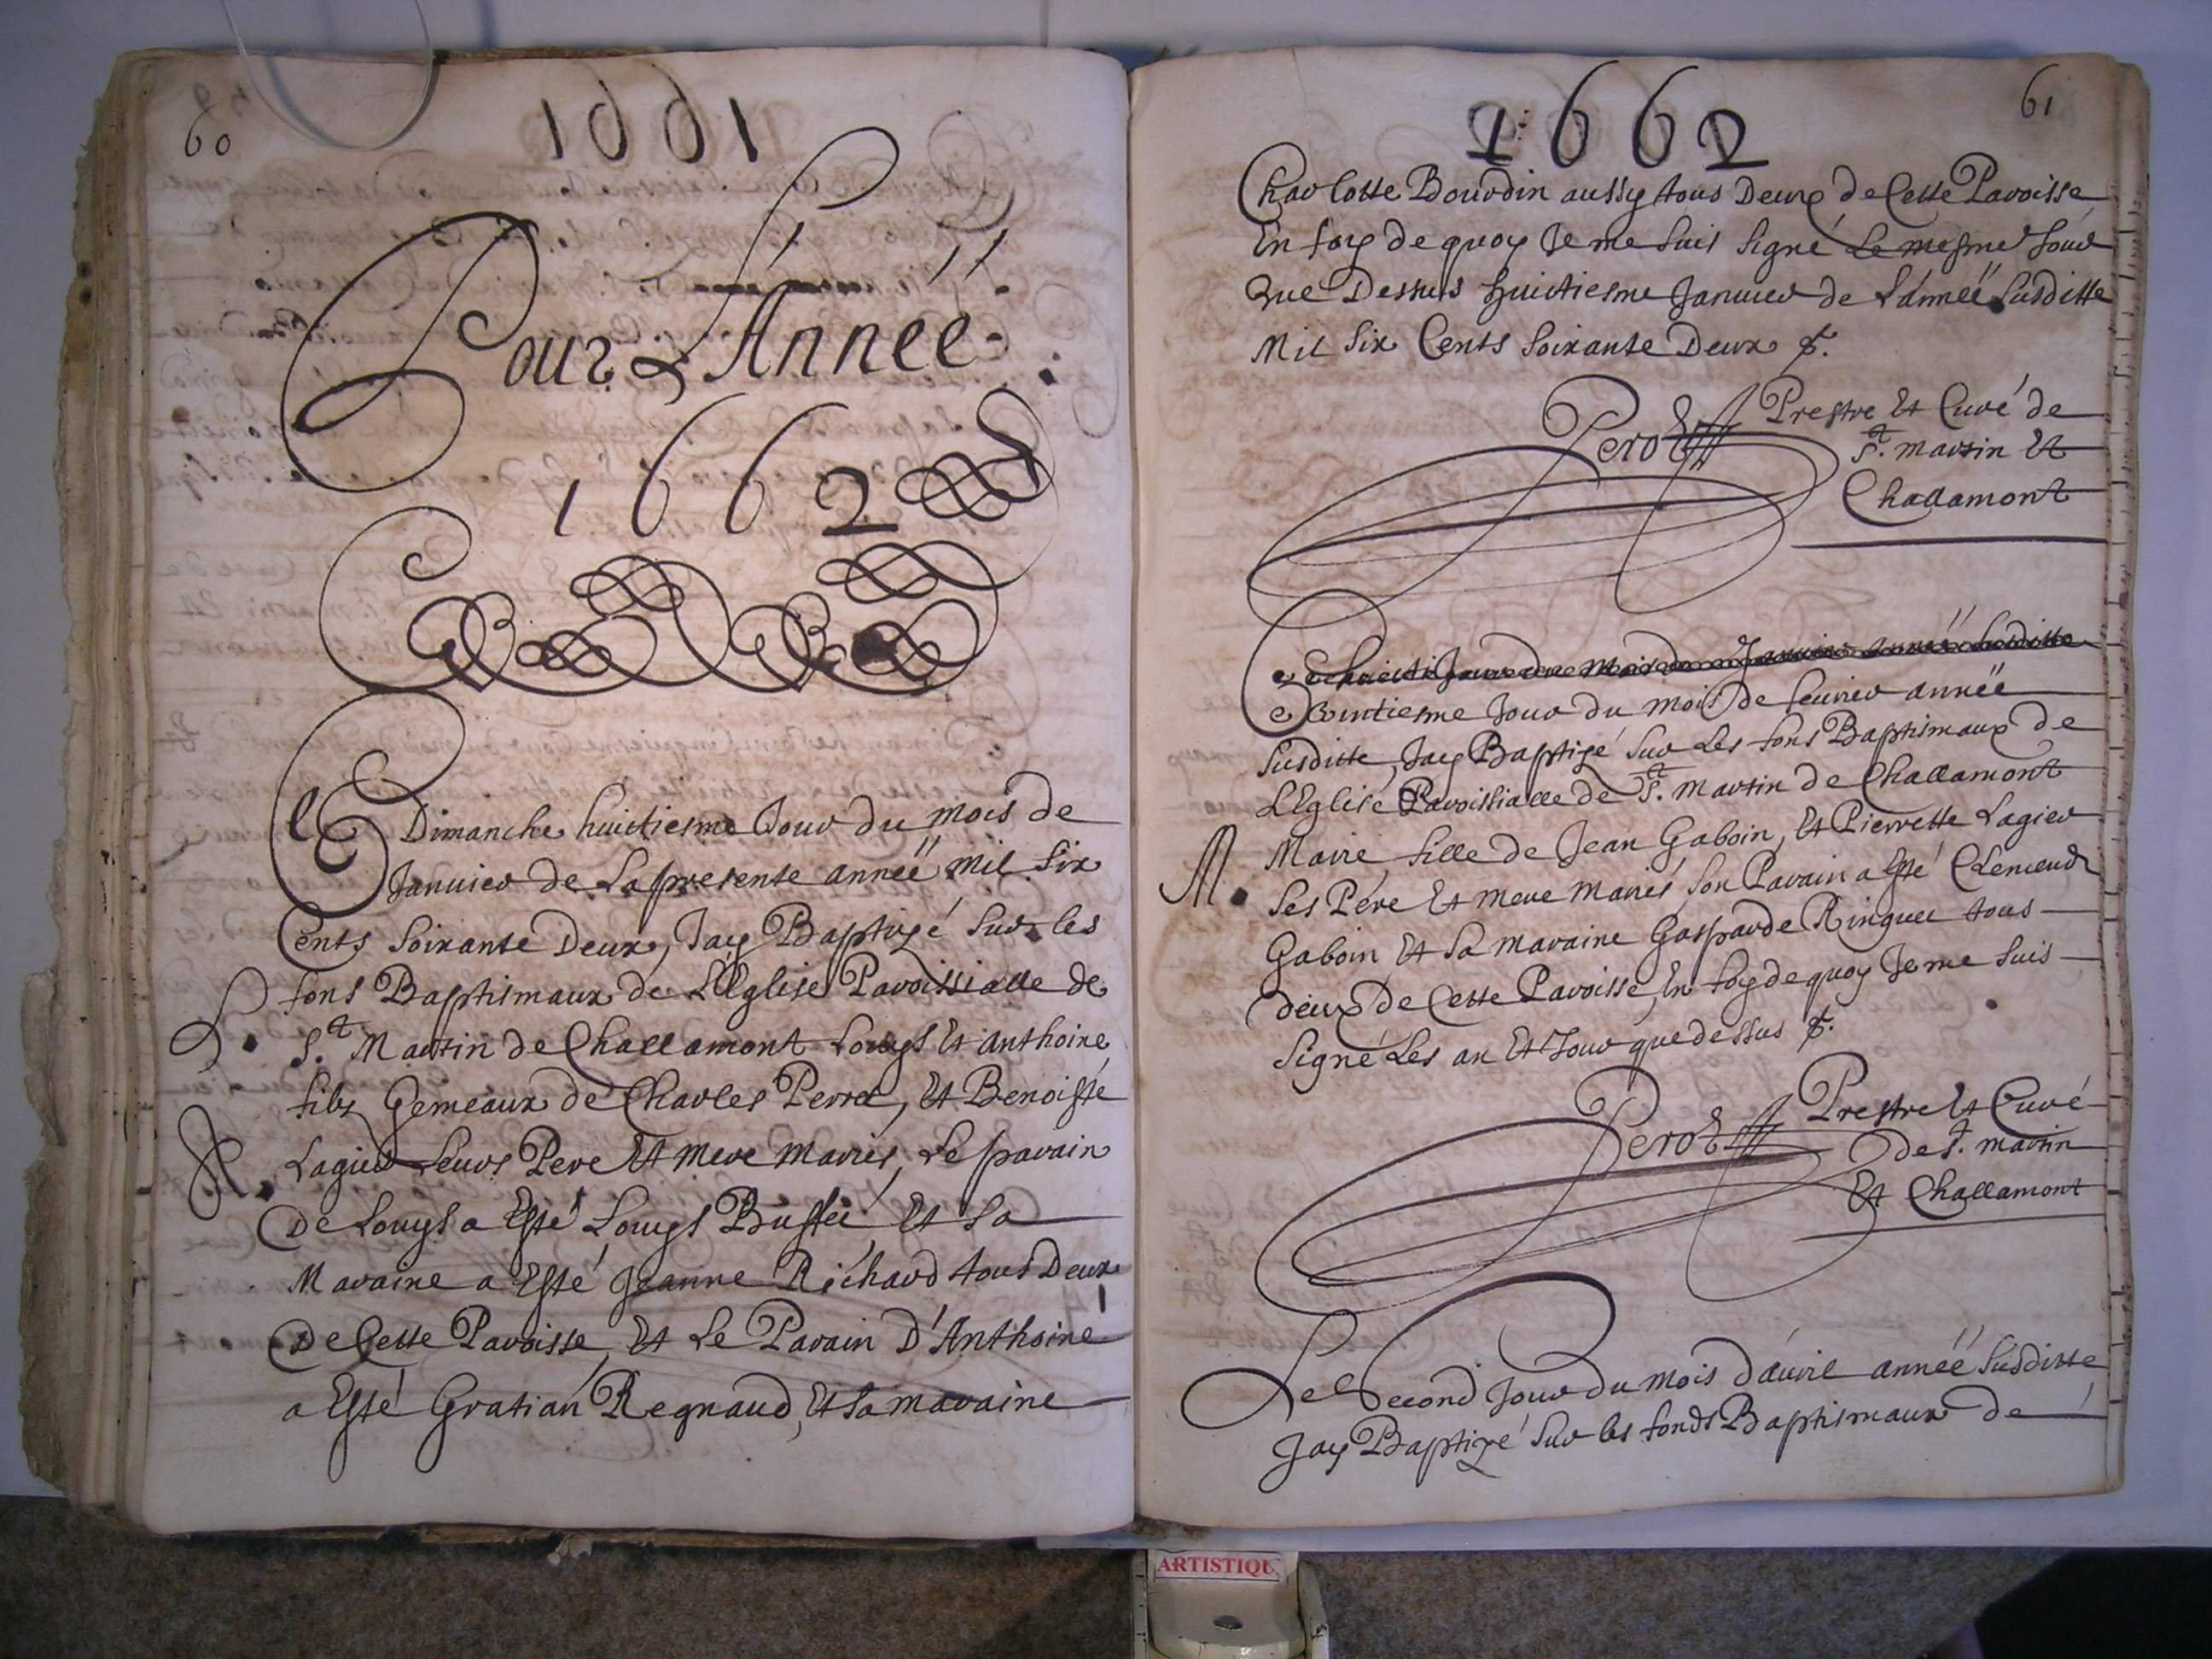 60
1661
Pour L'Année
1662
Le Dimanche huictiesme Jour du mois de
Januier de La presente année mil six
Cents soixante Deux, Jay Baptizé sur les
fons Baptismaux de L'Eglise Paroissialle de
L. St. Martin de Challamont Louys Et Anthoine
filz Gemeaux de Charles Perret, Et Benoiste
A. Lagier Leurs Pere Et mere Mariés, Le parain
De Louys a Esté Louys Et sa
Maraine a Esté Jeanne Richard tous Deux
De Cette Paroisse, Et Le Parain D'Anthoine
a Esté Gratian Regnaud, Et sa maraine
61
1662
Charlotte Bourdin aussy tous Deux de Cette Paroisse
En foy de quoy Je me suis signé Le mesme Jour
Que Dessus huictiesme Januier de L'année susditte
Mil six Cents soixante Deux
Perot Prestre Et Curé de
St. martin Et
Challamont
Le huicti Jour du Mois de Januier année susditte
Le Vintiesme Jour du mois de feurier année
susditte, Jay Baptizé sur Les fons Baptismaux de
L'Eglise Paroissialle de St. Martin de Challamont
M. Marie fille de Jean Gaboin, Et Pierrette Lagier
ses Pere Et mere Mariés son Parain a Esté
Gaboin Et sa maraine Gasparde Ringuet tous
deux de Cette Paroisse, En foy de quoy Je me suis
signé Les an Et Jour que dessus
Perot Prestre Et Curé
de St. martin
Et Challamont
Le Second Jour du mois d'auril année susditte
Jay Baptizé sur les fonds Baptismaux de
ARTISTIQU